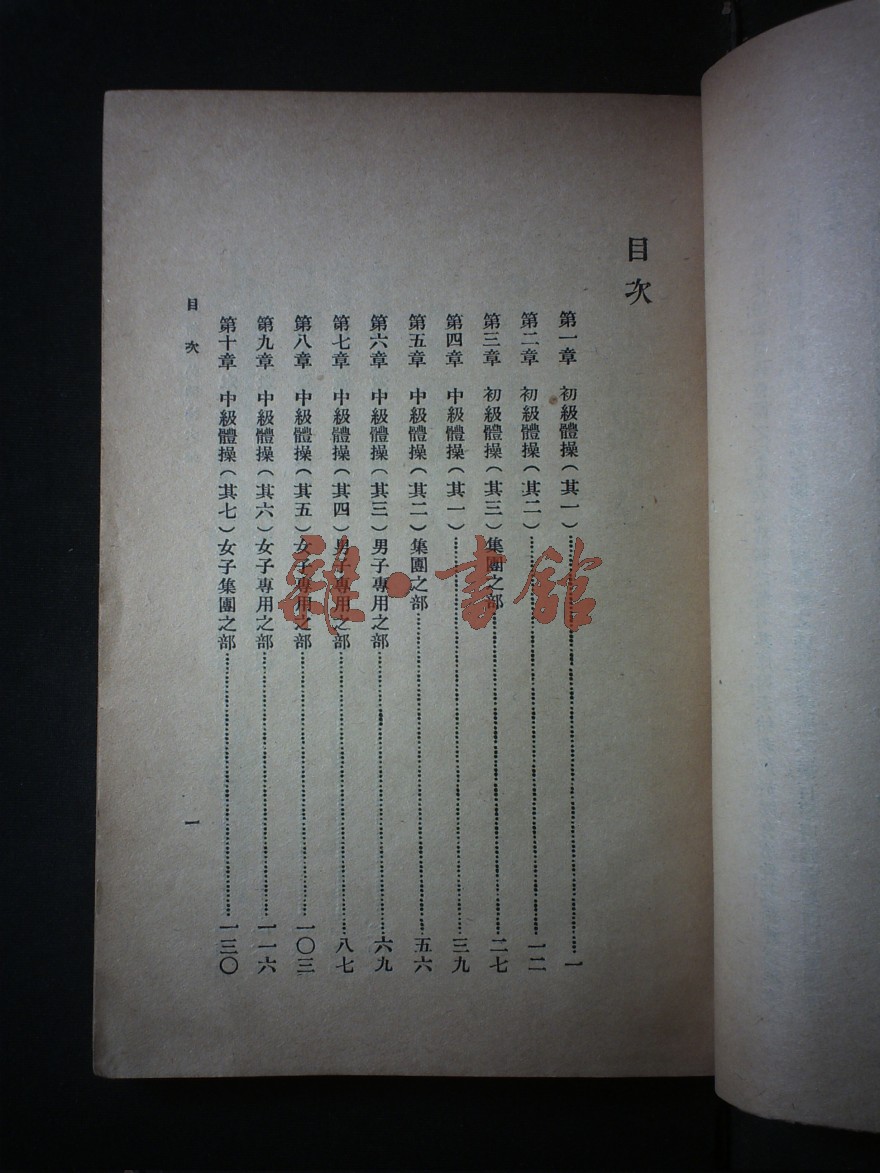 目次
第一章 初級體操(其一)……一
第二章 初級體操(其二)……一二
第三章 初級體操(其三)集團之部……二七
第四章 中級體操(其一)……三九
第五章 中級體操(其二)集團之部……五六
第六章 中級體操(其三)男子專用之部……六九
第七章 中級體操(其四)男子專用之部……八七
第八章 中級體操(其五)女子專用之部……一〇三
第九章 中級體操(其六)女子專用之部……一一六
第十章 中級體操(其七)女子集團之部……一三〇
目次 一
雜·書館